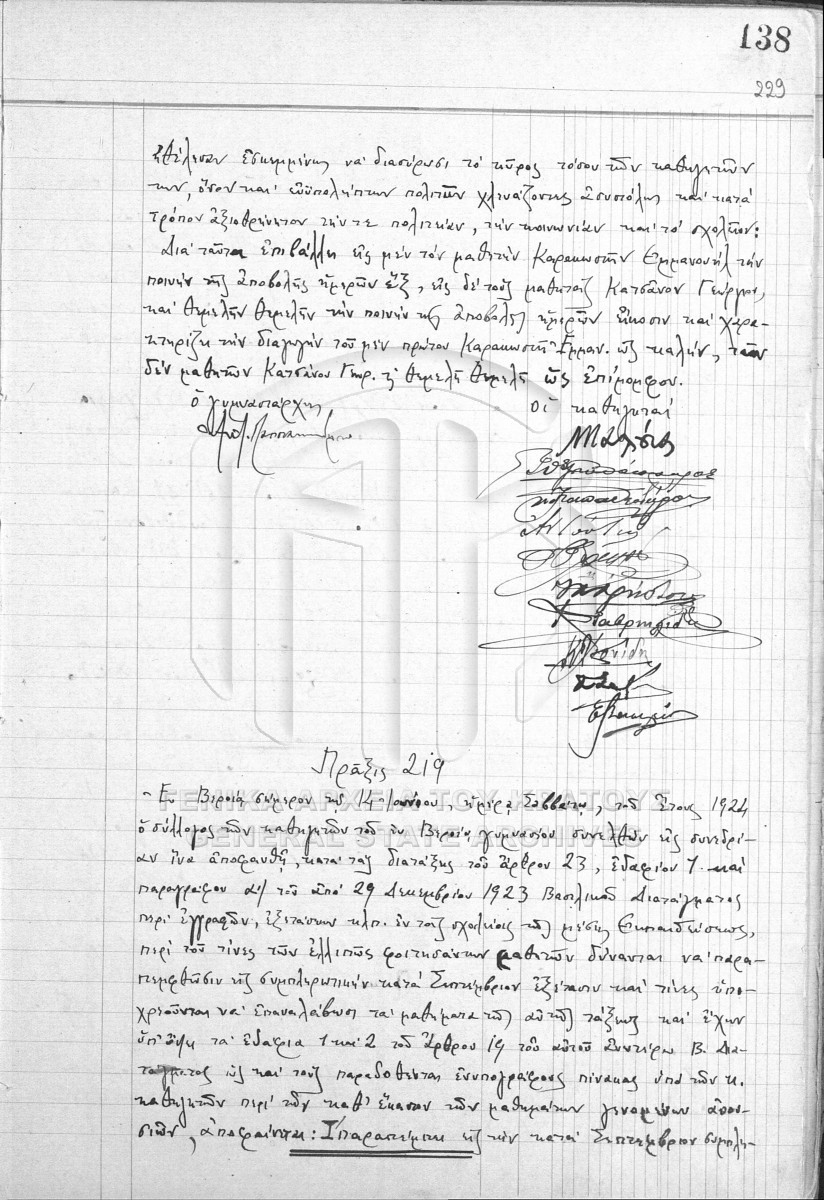 138
229
ἠθέλησαν ἐσκεμμένως νὰ διασύρωσι τὸ κῦρος τόσον τῶν καθηγητῶν
των, ὅσον καὶ εὐϋπολήπτων πολιτῶν χλευάζοντες ἀσυστόλως καὶ κατὰ
τρόπον ἀξιοθρήνητον τήν τε πολιτείαν, τὴν κοινωνίαν καὶ τὸ σχολεῖον:
Διὰ ταῦτα ἐπιβάλλει εἰς μὲν τὸν μαθητὴν Καρακωστῆν Ἐμμανουὴλ τὴν
ποινὴν τῆς ἀποβολῆς ἡμερῶν ἕξ, εἰς δὲ τοὺς μαθητὰς Κατσᾶνον Γεώργιον,
καὶ Θεμελῆν Θεμελῆν τὴν ποινὴν τῆς ἀποβολῆς ἡμερῶν εἴκοσιν καὶ χαρα-
κτηρίζει τὴν διαγωγὴν τοῦ μὲν πρώτου Καρακωστῆ Ἐμμαν. ὡς καλήν, τῶν
δὲ μαθητῶν Κατσάνου Γεωρ. κ Θεμελῆ Θεμελῆ ὡς ἐπίμομφον.
ὁ γυμνασιάρχης
Οἱ καθηγηταί
Πρᾶξις 219
Ἐν Βεροίᾳ σήμερον τῇ 14 Ἰουνίου, ἡμέρᾳ Σαββάτῳ, τοῦ ἔτους 1924
ὁ σύλλογος τῶν καθηγητῶν τοῦ ἐν Βεροίᾳ γυμνασίου συνελθὼν εἰς συνεδρί-
αν ἵνα ἀποφανθῇ, κατὰ τὰς διατάξεις τοῦ ἄρθρου 23, ἐδαφίου 1 καὶ
παραγράφου α/ τοῦ ἀπὸ 29 Δεκεμβρίου 1923 Βασιλικοῦ Διατάγματος
περὶ ἐγγραφῶν, ἐξετάσεων κλπ. ἐν τοῖς σχολείοις τῆς μέσης Ἐκπαιδεύσεως,
περὶ τοῦ τίνες τῶν ἐλλιπῶς φοιτησάντων μαθητῶν δύνανται νὰ παρα-
πεμφθῶσιν εἰς συμπληρωτικὴν κατὰ Σεπτέμβριον ἐξέτασιν καὶ τίνες ὑπο-
χρεοῦνται νὰ ἐπαναλάβωσι τὰ μαθήματα τῆς αὐτῆς τάξεως καὶ ἔχων
ὑπ' ὄψει τὰ ἐδάφια 1 καὶ 2 τοῦ ἄρθρου 19 τοῦ αὐτοῦ ἀνωτέρω Β. Δια-
τάγματος ὡς καὶ τοὺς παραδοθέντας ἐνυπογράφους πίνακας ὑπὸ τῶν κ.
καθηγητῶν περὶ τῶν καθ' ἕκαστον τῶν μαθημάτων γενομένων ἀπου-
σιῶν, ἀποφαίνεται: Ι/ παραπέμπει εἰς τὴν κατὰ Σεπτέμβριον συμπλη-
ΓΕΝΙΚΑ ΑΡΧΕΙΑ ΤΟΥ ΚΡΑΤΟΥΣ
GENERAL STATE ARCHIVES